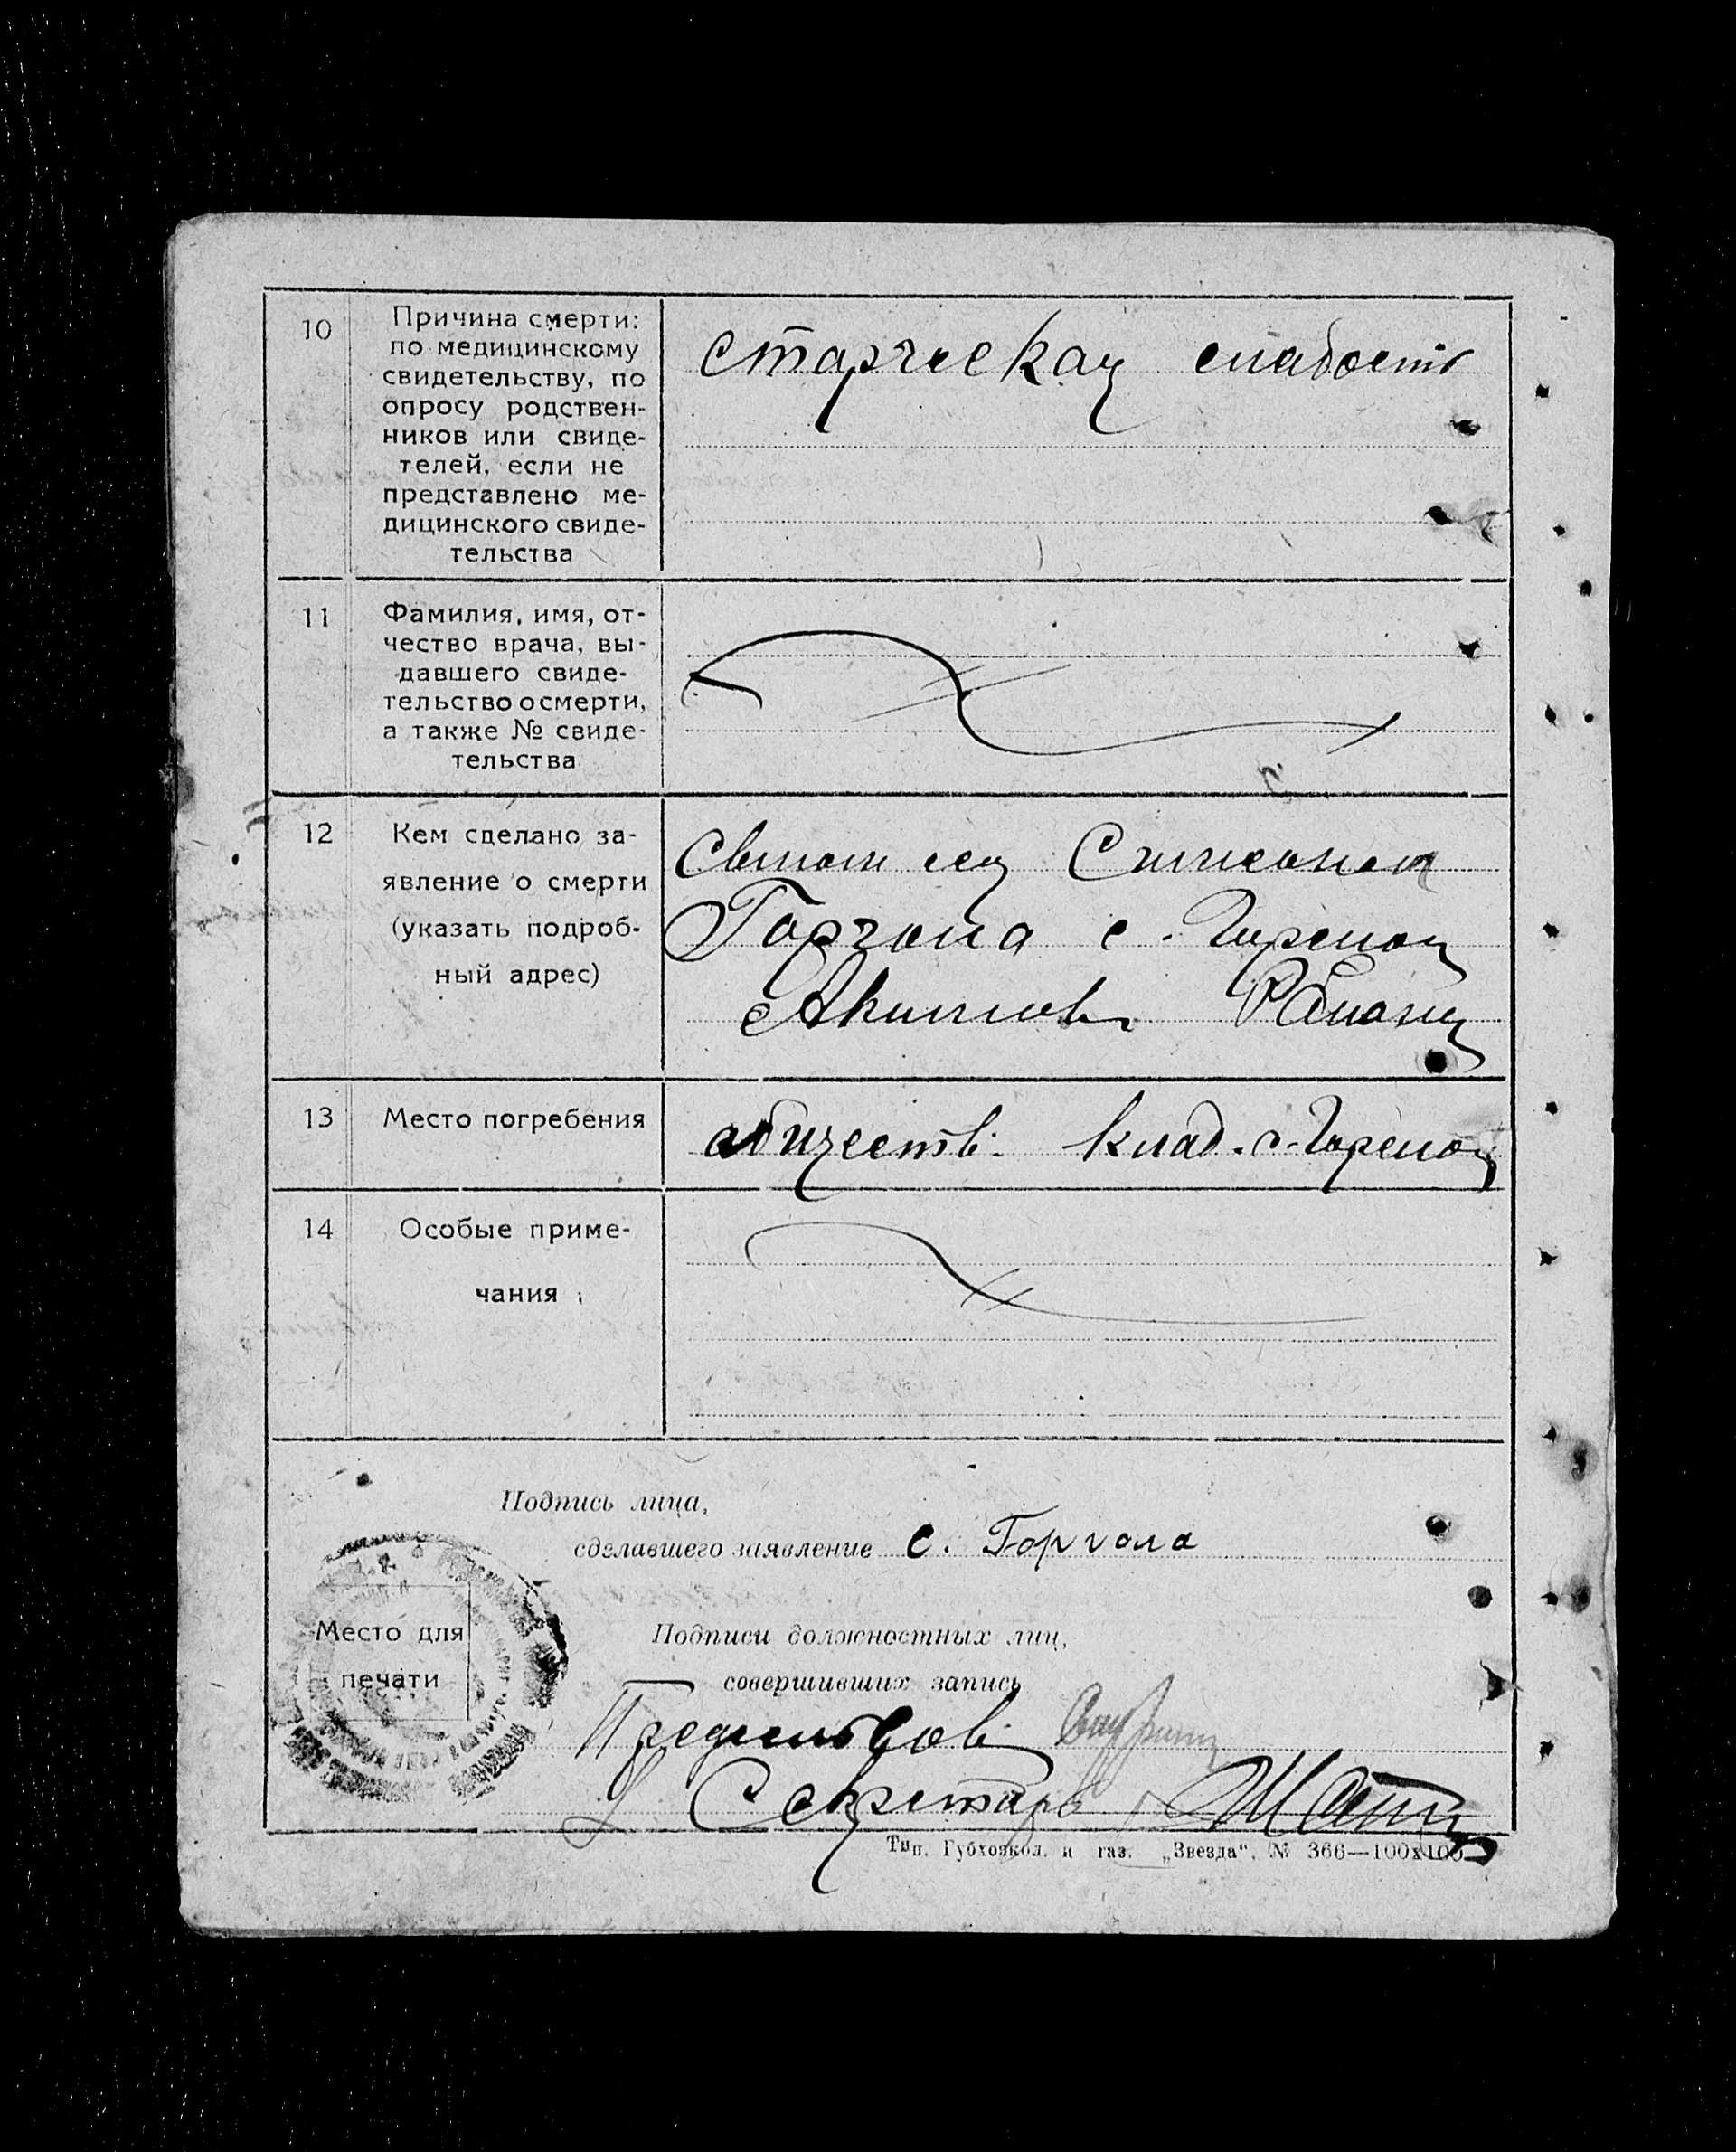 10
Причина смерти:
по медицинскому
свидетельству, по
опросу родствен-
ников или свиде-
телей, если не
представлено ме-
дицинского свиде-
тельства
старческая слабость
11
Фамилия, имя, от-
чество врача, вы-
давшего свиде-
тельство о смерти,
а также № свиде-
тельства
12
Кем сделано за-
явление о смерти
(указать подроб-
ный адрес)
Горгола с.
13
Место погребения
обществ. клад. с.
14
Особые приме-
чания
Подпись лица,
сделавшего заявление с. Горгола
Место для
печати
Подписи должностных лиц,
совершивших запись
Секретарь
Тип. Губхозкол. и газ. „Звезда“. № 366—100х100